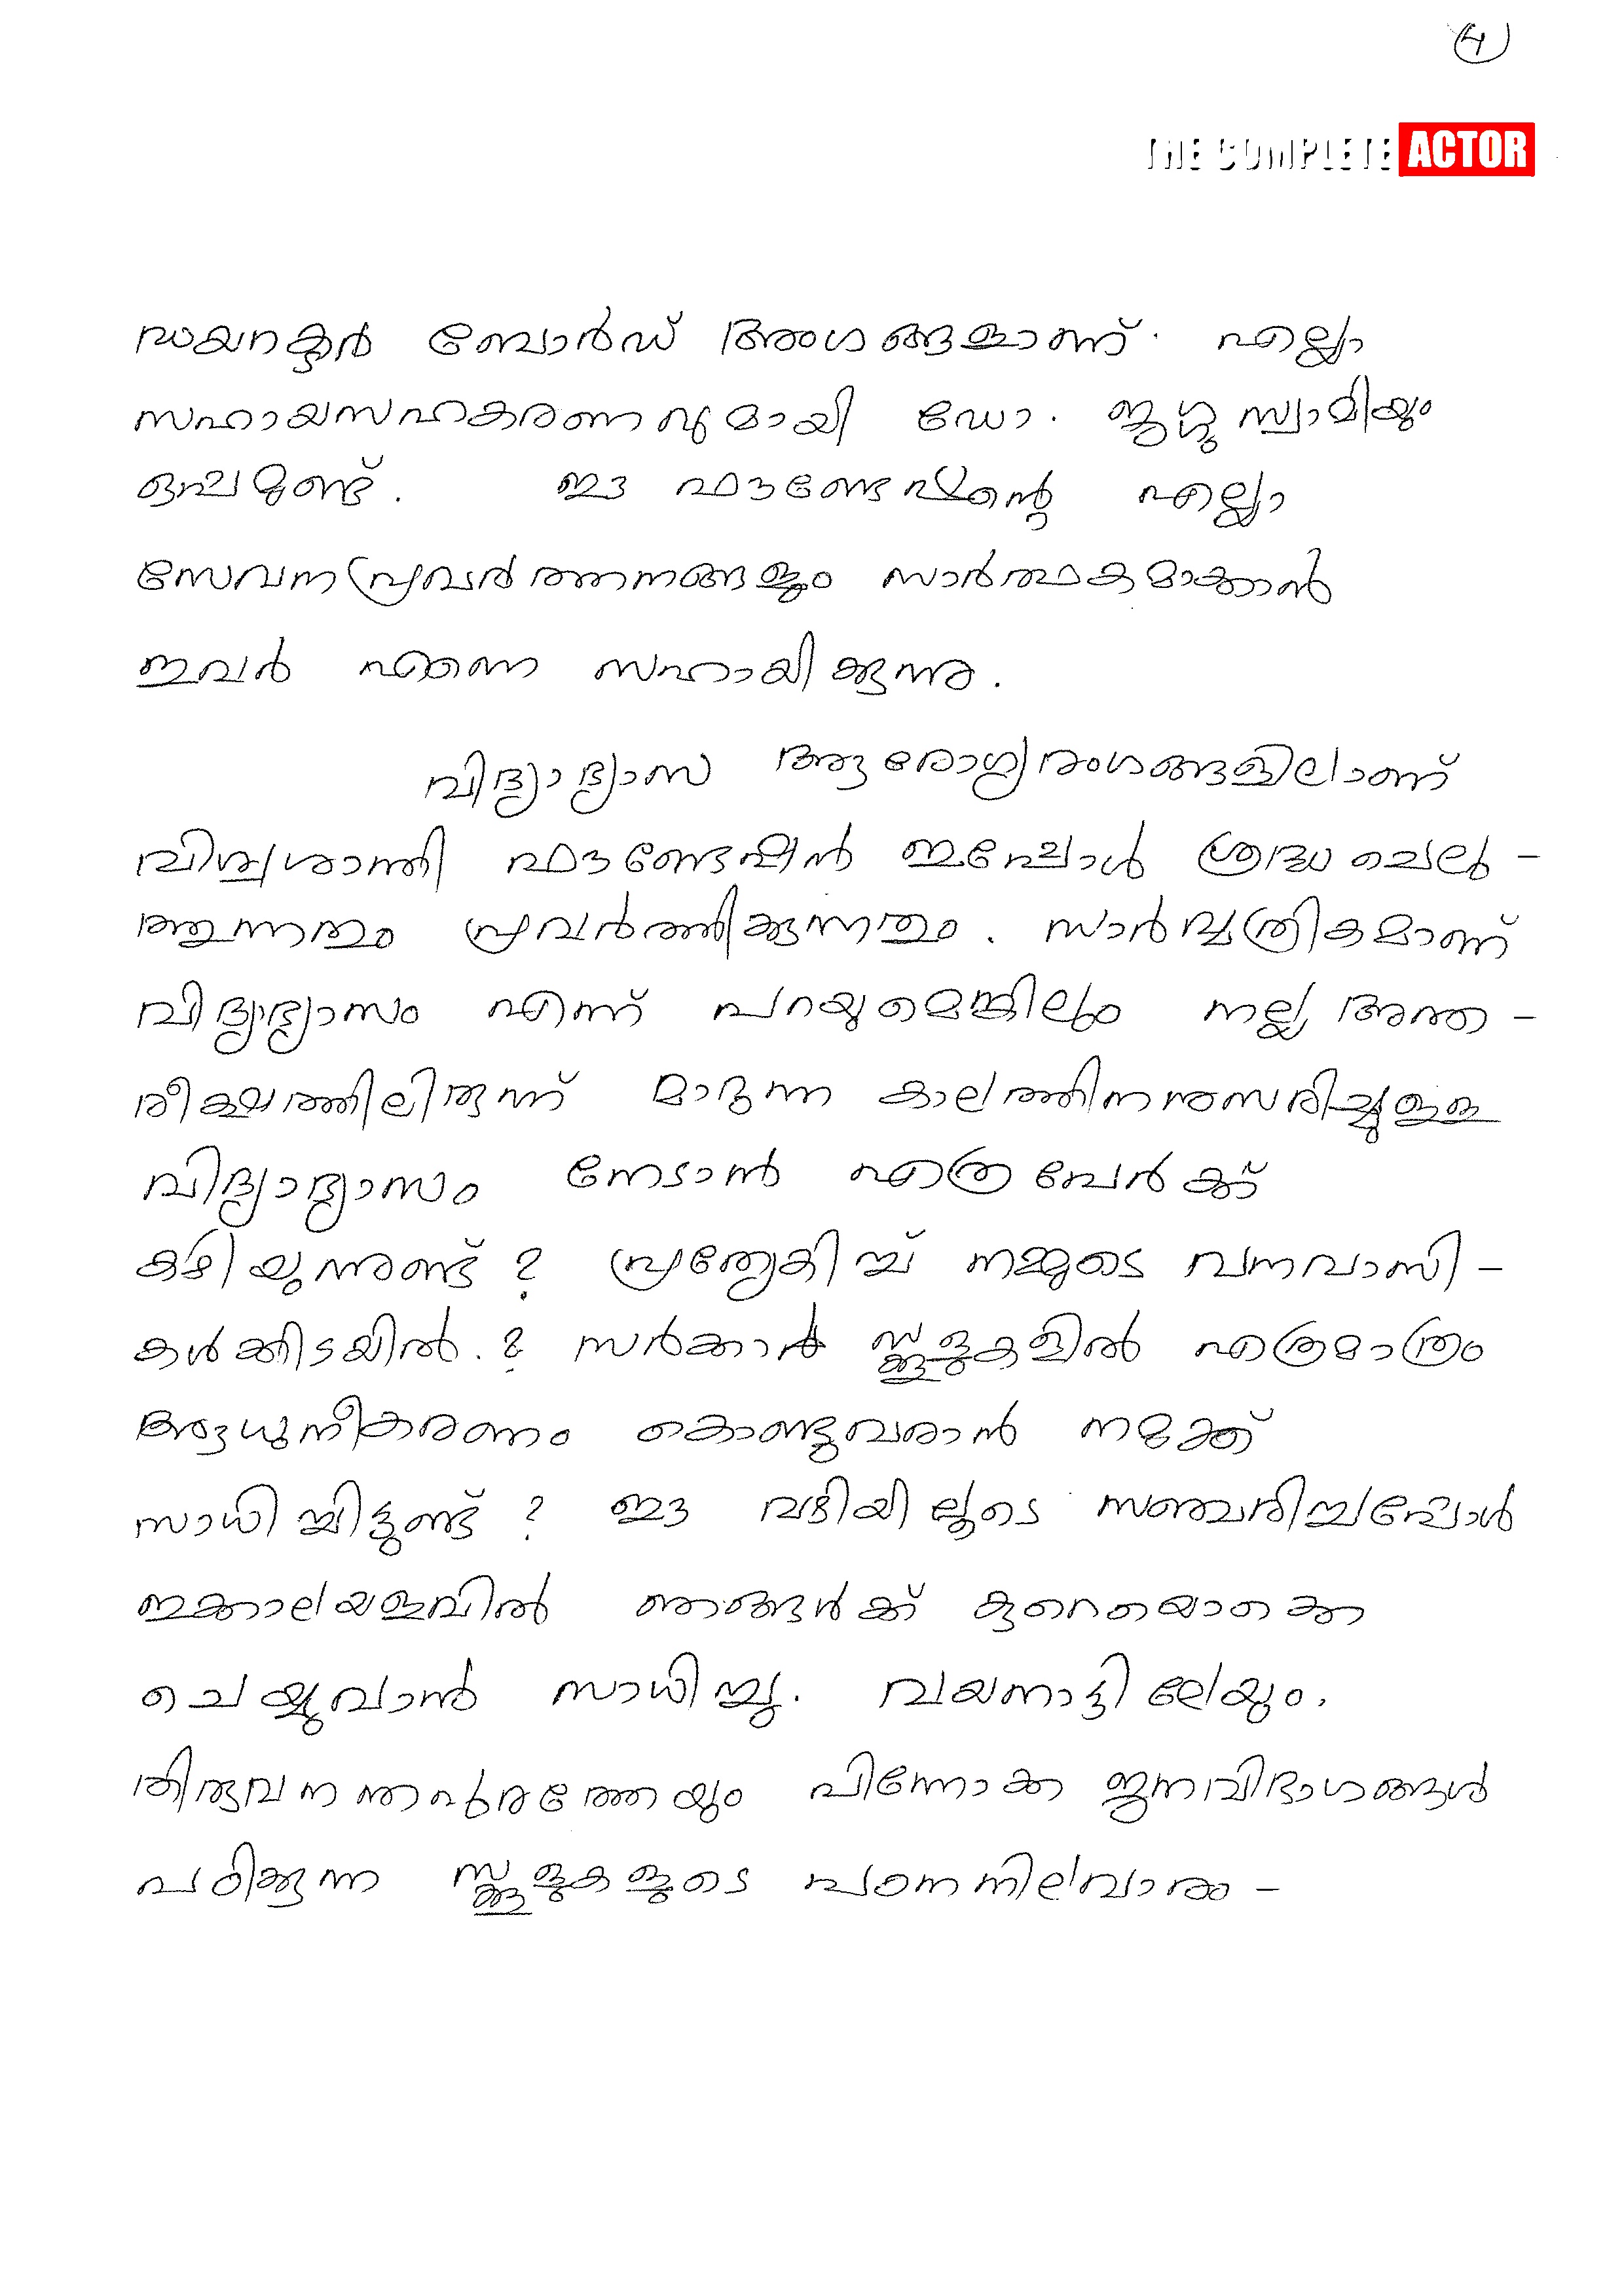 4
THE COMPLETE ACTOR
ഡയറക്ടർ ബോർഡ് അംഗങ്ങളാണ്. എല്ലാ
സഹായസഹകരണവുമായി ഡോ. ജഗ്ഗുസ്വാമിയും
ഒപ്പമുണ്ട്. ഈ ഫൗണ്ടേഷന്റെ എല്ലാ
സേവനപ്രവർത്തനങ്ങളും സാർത്ഥകമാക്കാൻ
ഇവർ എന്നെ സഹായിക്കുന്നു.
വിദ്യാഭ്യാസ ആരോഗ്യരംഗങ്ങളിലാണ്
വിശ്വശാന്തി ഫൗണ്ടേഷൻ ഇപ്പോൾ ശ്രദ്ധചെലു -
ത്തുന്നതും പ്രവർത്തിക്കുന്നതും. സാർവ്വത്രികമാണ്
വിദ്യാഭ്യാസം എന്ന് പറയുമെങ്കിലും നല്ല അന്ത -
രീക്ഷത്തിലിരുന്ന് മാറുന്ന കാലത്തിനനുസരിച്ചുള്ള
വിദ്യാഭ്യാസം നേടാൻ എത്ര പേർക്ക്
കഴിയുന്നുണ്ട് ? പ്രത്യേകിച്ച് നമ്മുടെ വനവാസി -
കൾക്കിടയിൽ.? സർക്കാർ സ്ക്കൂളുകളിൽ എത്രമാത്രം
ആധുനീകരണം കൊണ്ടുവരാൻ നമുക്ക്
സാധിച്ചിട്ടുണ്ട് ? ഈ വഴിയിലൂടെ സഞ്ചരിച്ചപ്പോൾ
ഇക്കാലയളവിൽ ഞങ്ങൾക്ക് കുറെയൊക്കെ
ചെയ്യുവാൻ സാധിച്ചു. വയനാട്ടിലേയും,
തിരുവനന്തപുരത്തേയും പിന്നോക്ക ജനവിഭാഗങ്ങൾ
പഠിക്കുന്ന സ്ക്കൂളുകളുടെ പഠനനിലവാരം -